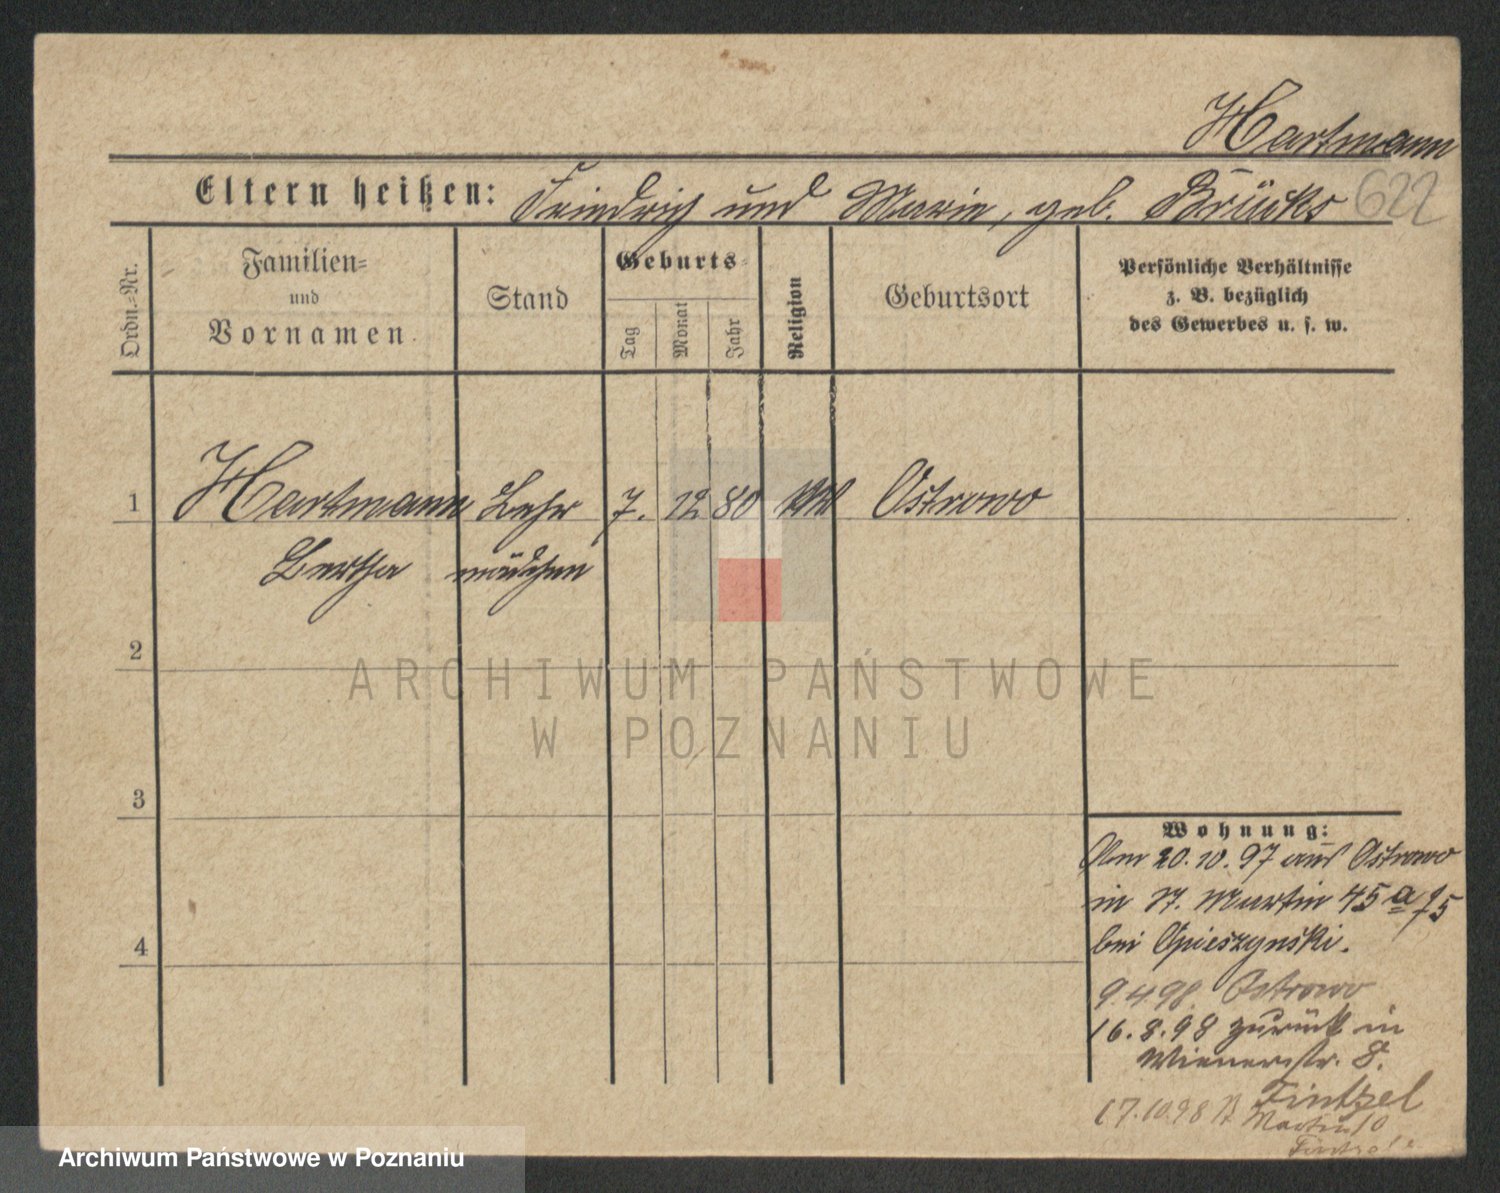 Hartmann
Eltern heißen: Friedrich und Marie, geb. Brücks 622
Ordn.-Nr.
Familien-
und
Vornamen.
Stand
Geburts-
Tag
Monat
Jahr
Religion
Geburtsort
Persönliche Verhältnisse
z. B. bezüglich
des Gewerbes u. s. w.
1 Hartmann Lehr 7. 12 80 Ostrowo
Bertha mädchen
2
3
4
Wohnung:
Am 20. 10. 97 aus Ostrowo
in St. Martin 45 a
bei Opieszynski.
9.4 98. Ostrowo
16. 8. 98 zurück in
Wienerstr. 8.
Fintzel
17. 10. 98 St Martin
ARCHIWUM PAŃSTWOWE
W POZNANIU
Archiwum Państwowe w Poznaniu